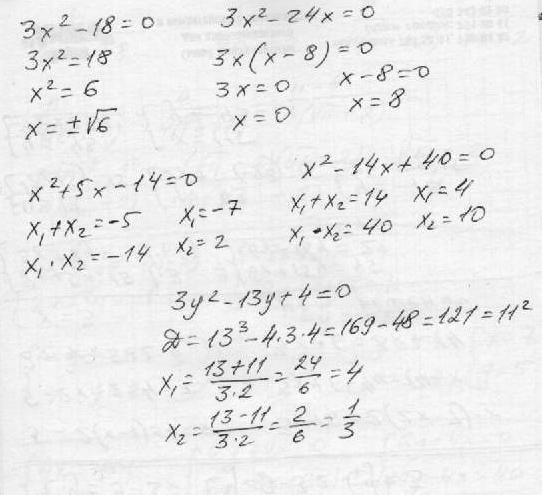 3x² - 18 = 0
3x² = 18
x² = 6
x = ±√6
3x² - 24x = 0
3x(x - 8) = 0
3x = 0 x - 8 = 0
x = 0 x = 8
x² + 5x - 14 = 0
x₁ + x₂ = -5 x₁ = -7
x₁ · x₂ = -14 x₂ = 2
x² - 14x + 40 = 0
x₁ + x₂ = 14 x₁ = 4
x₁ · x₂ = 40 x₂ = 10
3y² - 13y + 4 = 0
D = 13³ - 4·3·4 = 169 - 48 = 121 = 11²
x₁ = (13 + 11)/(3·2) = 24/6 = 4
x₂ = (13 - 11)/(3·2) = 2/6 = 1/3